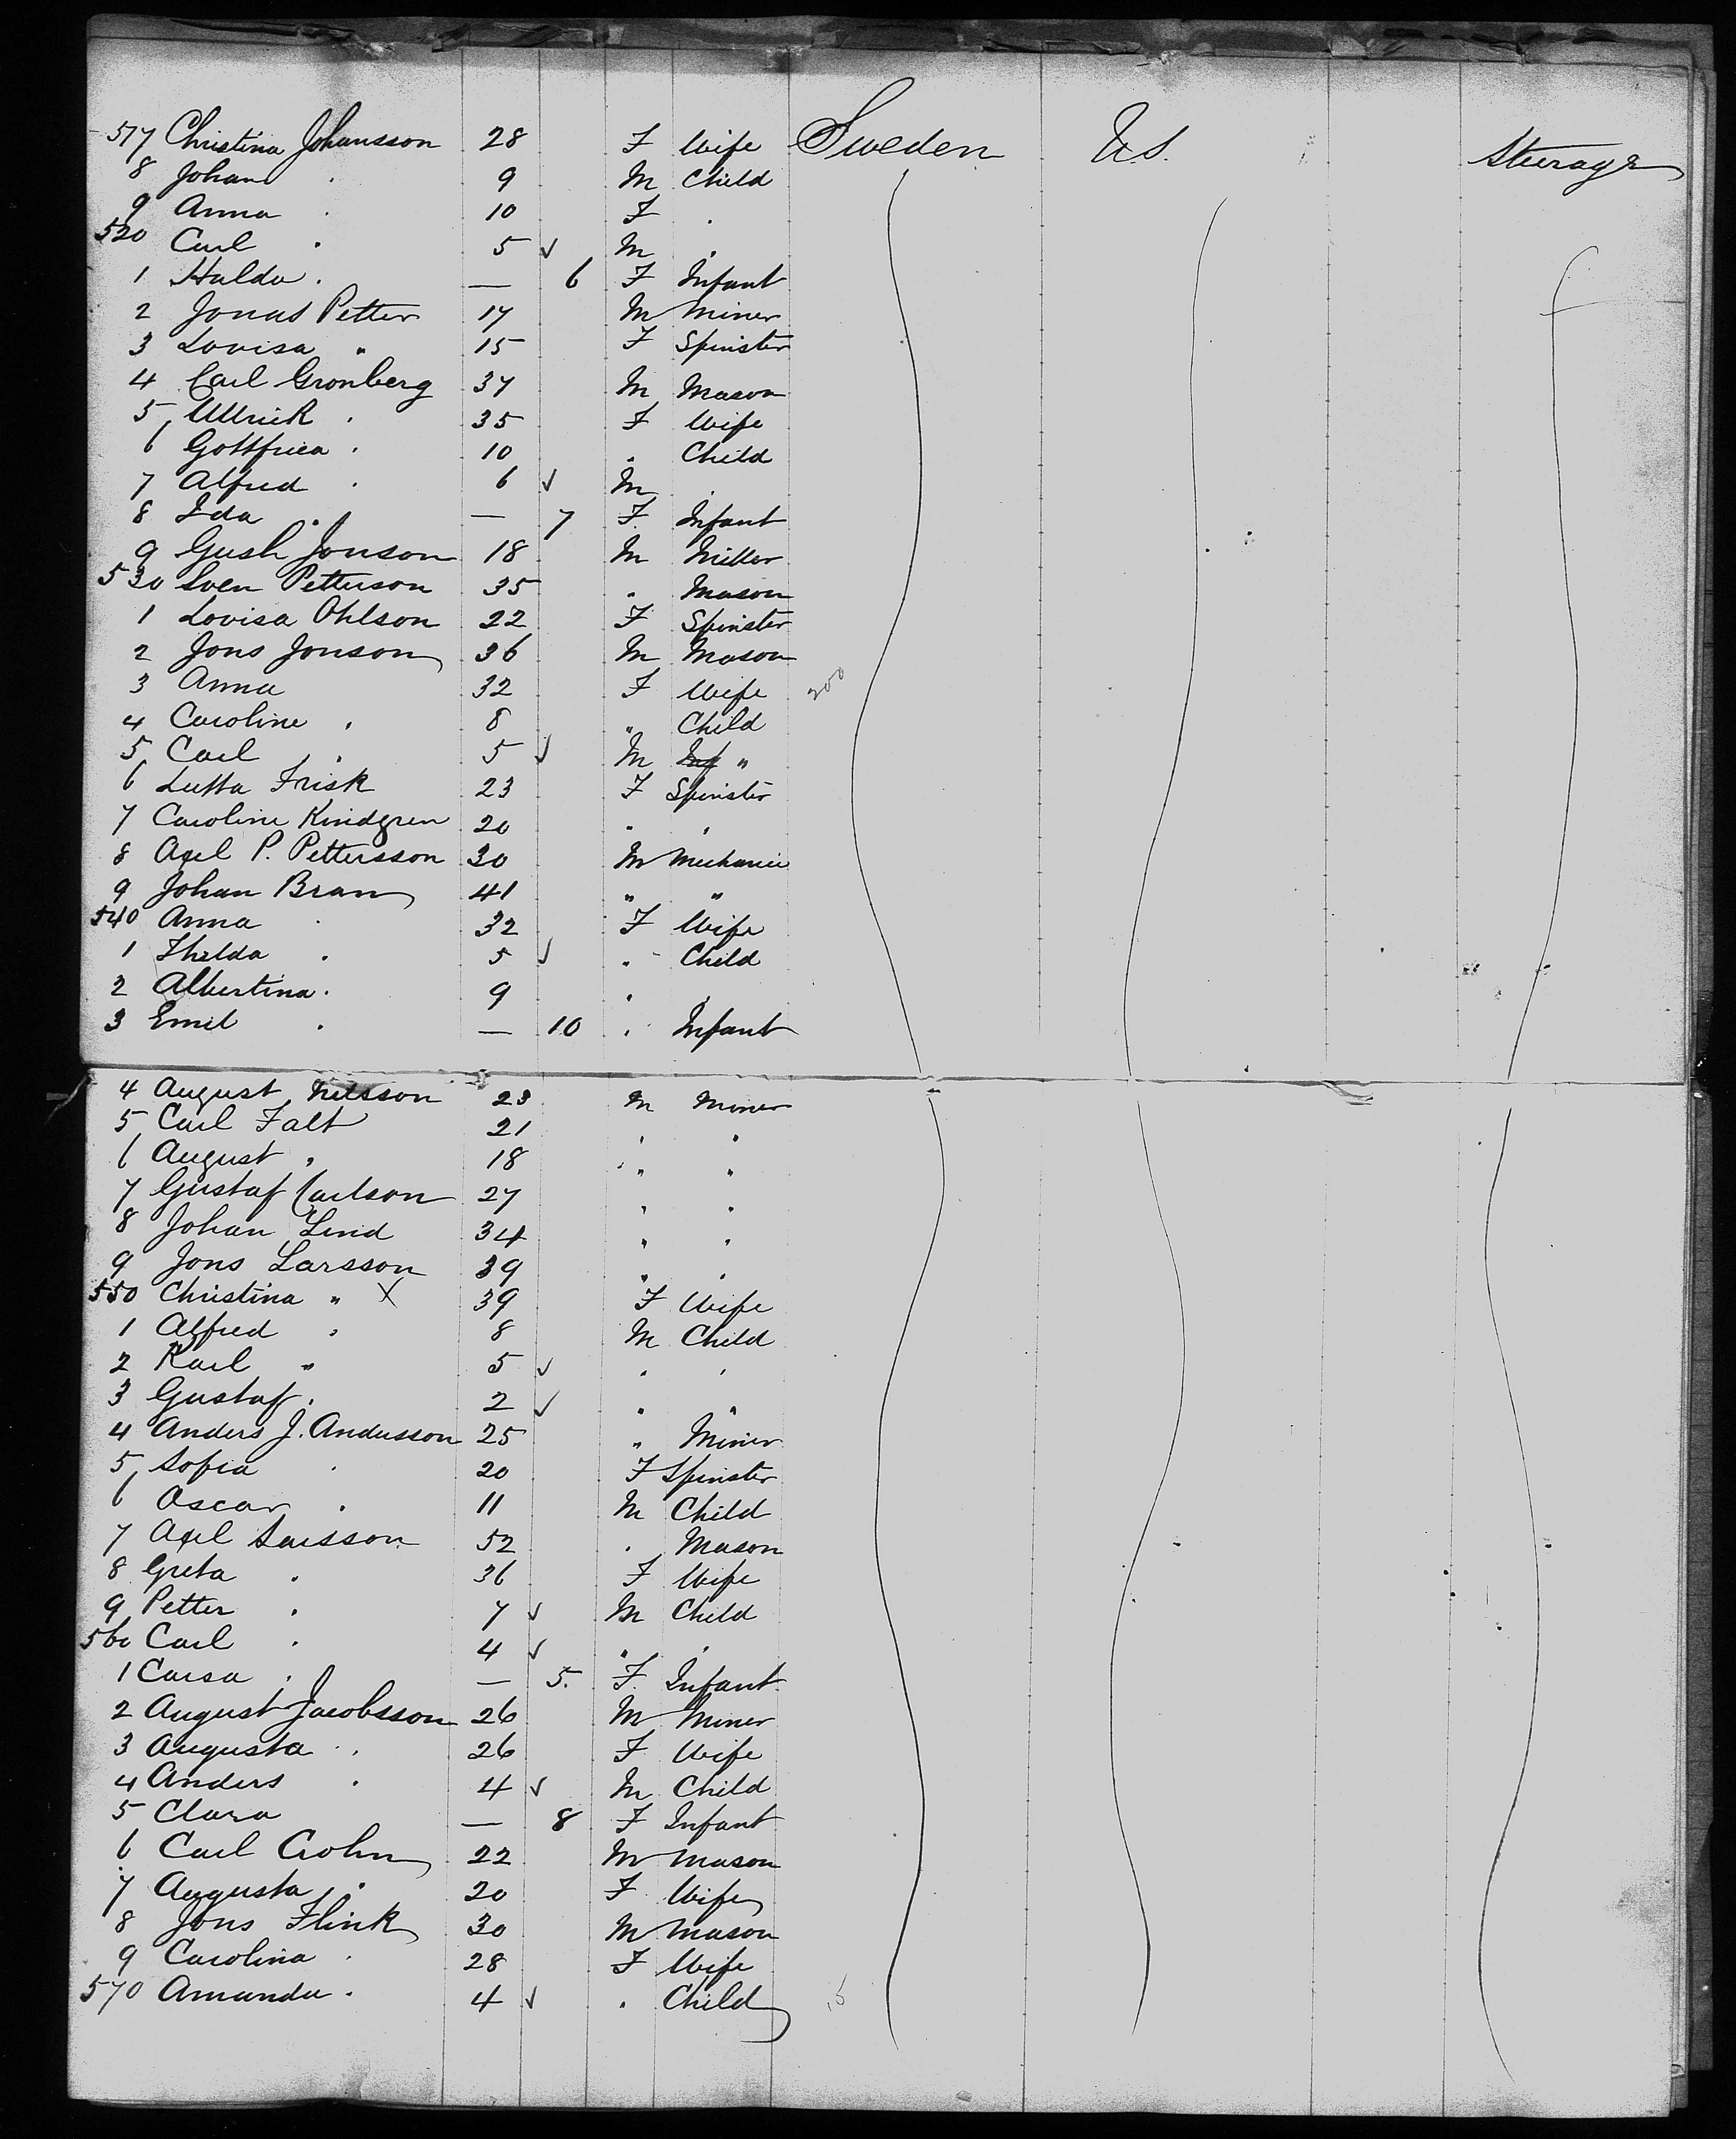 517 Christina Johansson 28 F Wife Sweden U.S. Steerage
8 Johan " 9 M Child
9 Anna " 10 F "
520 Carl " 5 ✓ M "
1 Hulda " — 6 F Infant
2 Jonas Petter 17 M Miner
3 Lovisa " 15 F Spinster
4 Carl Gronberg 37 M Mason
5 Ullrick " 35 F Wife
6 Gottfriea " 10 " Child
7 Alfred " 6 ✓ M "
8 Ida " — 7 F Infant
9 Gust Jonson 18 M Miller
530 Sven Petterson 35 " Mason
1 Lovisa Ohlson 22 F Spinster
2 Jons Jonson 36 M Mason
3 Anna 32 F Wife 200
4 Caroline " 8 " Child
5 Carl " 5 ✓ M Inf "
6 Lutta Frisk 23 F Spinster
7 Caroline Kindgren 20 " "
8 Axel P. Pettersson 30 M Mechanic
9 Johan Bran 41 " "
540 Anna " 32 F Wife
1 Thilda " 5 ✓ " Child
2 Albertina " 9 " "
3 Emil " — 10 " Infant
4 August Nilsson 23 M Miner
5 Carl Falt 21 " "
6 August " 18 " "
7 Gustaf Carlson 27 " "
8 Johan Lind 34 " "
9 Jons Larsson 39 " "
550 Christina " X 39 F Wife
1 Alfred " 8 M Child
2 Karl " 5 ✓ " "
3 Gustaf " 2 ✓ " "
4 Anders J. Andersson 25 " Miner
5 Sofia " 20 F Spinster
6 Oscar " 11 M Child
7 Axel Larsson 52 " Mason
8 Greta " 36 F Wife
9 Petter " 7 ✓ M Child
560 Carl " 4 ✓ " "
1 Caisa " — 5 F Infant
2 August Jacobsson 26 M Miner
3 Augusta " 26 F Wife
4 Anders " 4 ✓ M Child
5 Clara — 8 F Infant
6 Carl Crohn 22 M Mason
7 Augusta " 20 F Wife
8 Jons Flink 30 M Mason
9 Carolina " 28 F Wife
570 Amanda " 4 ✓ " Child